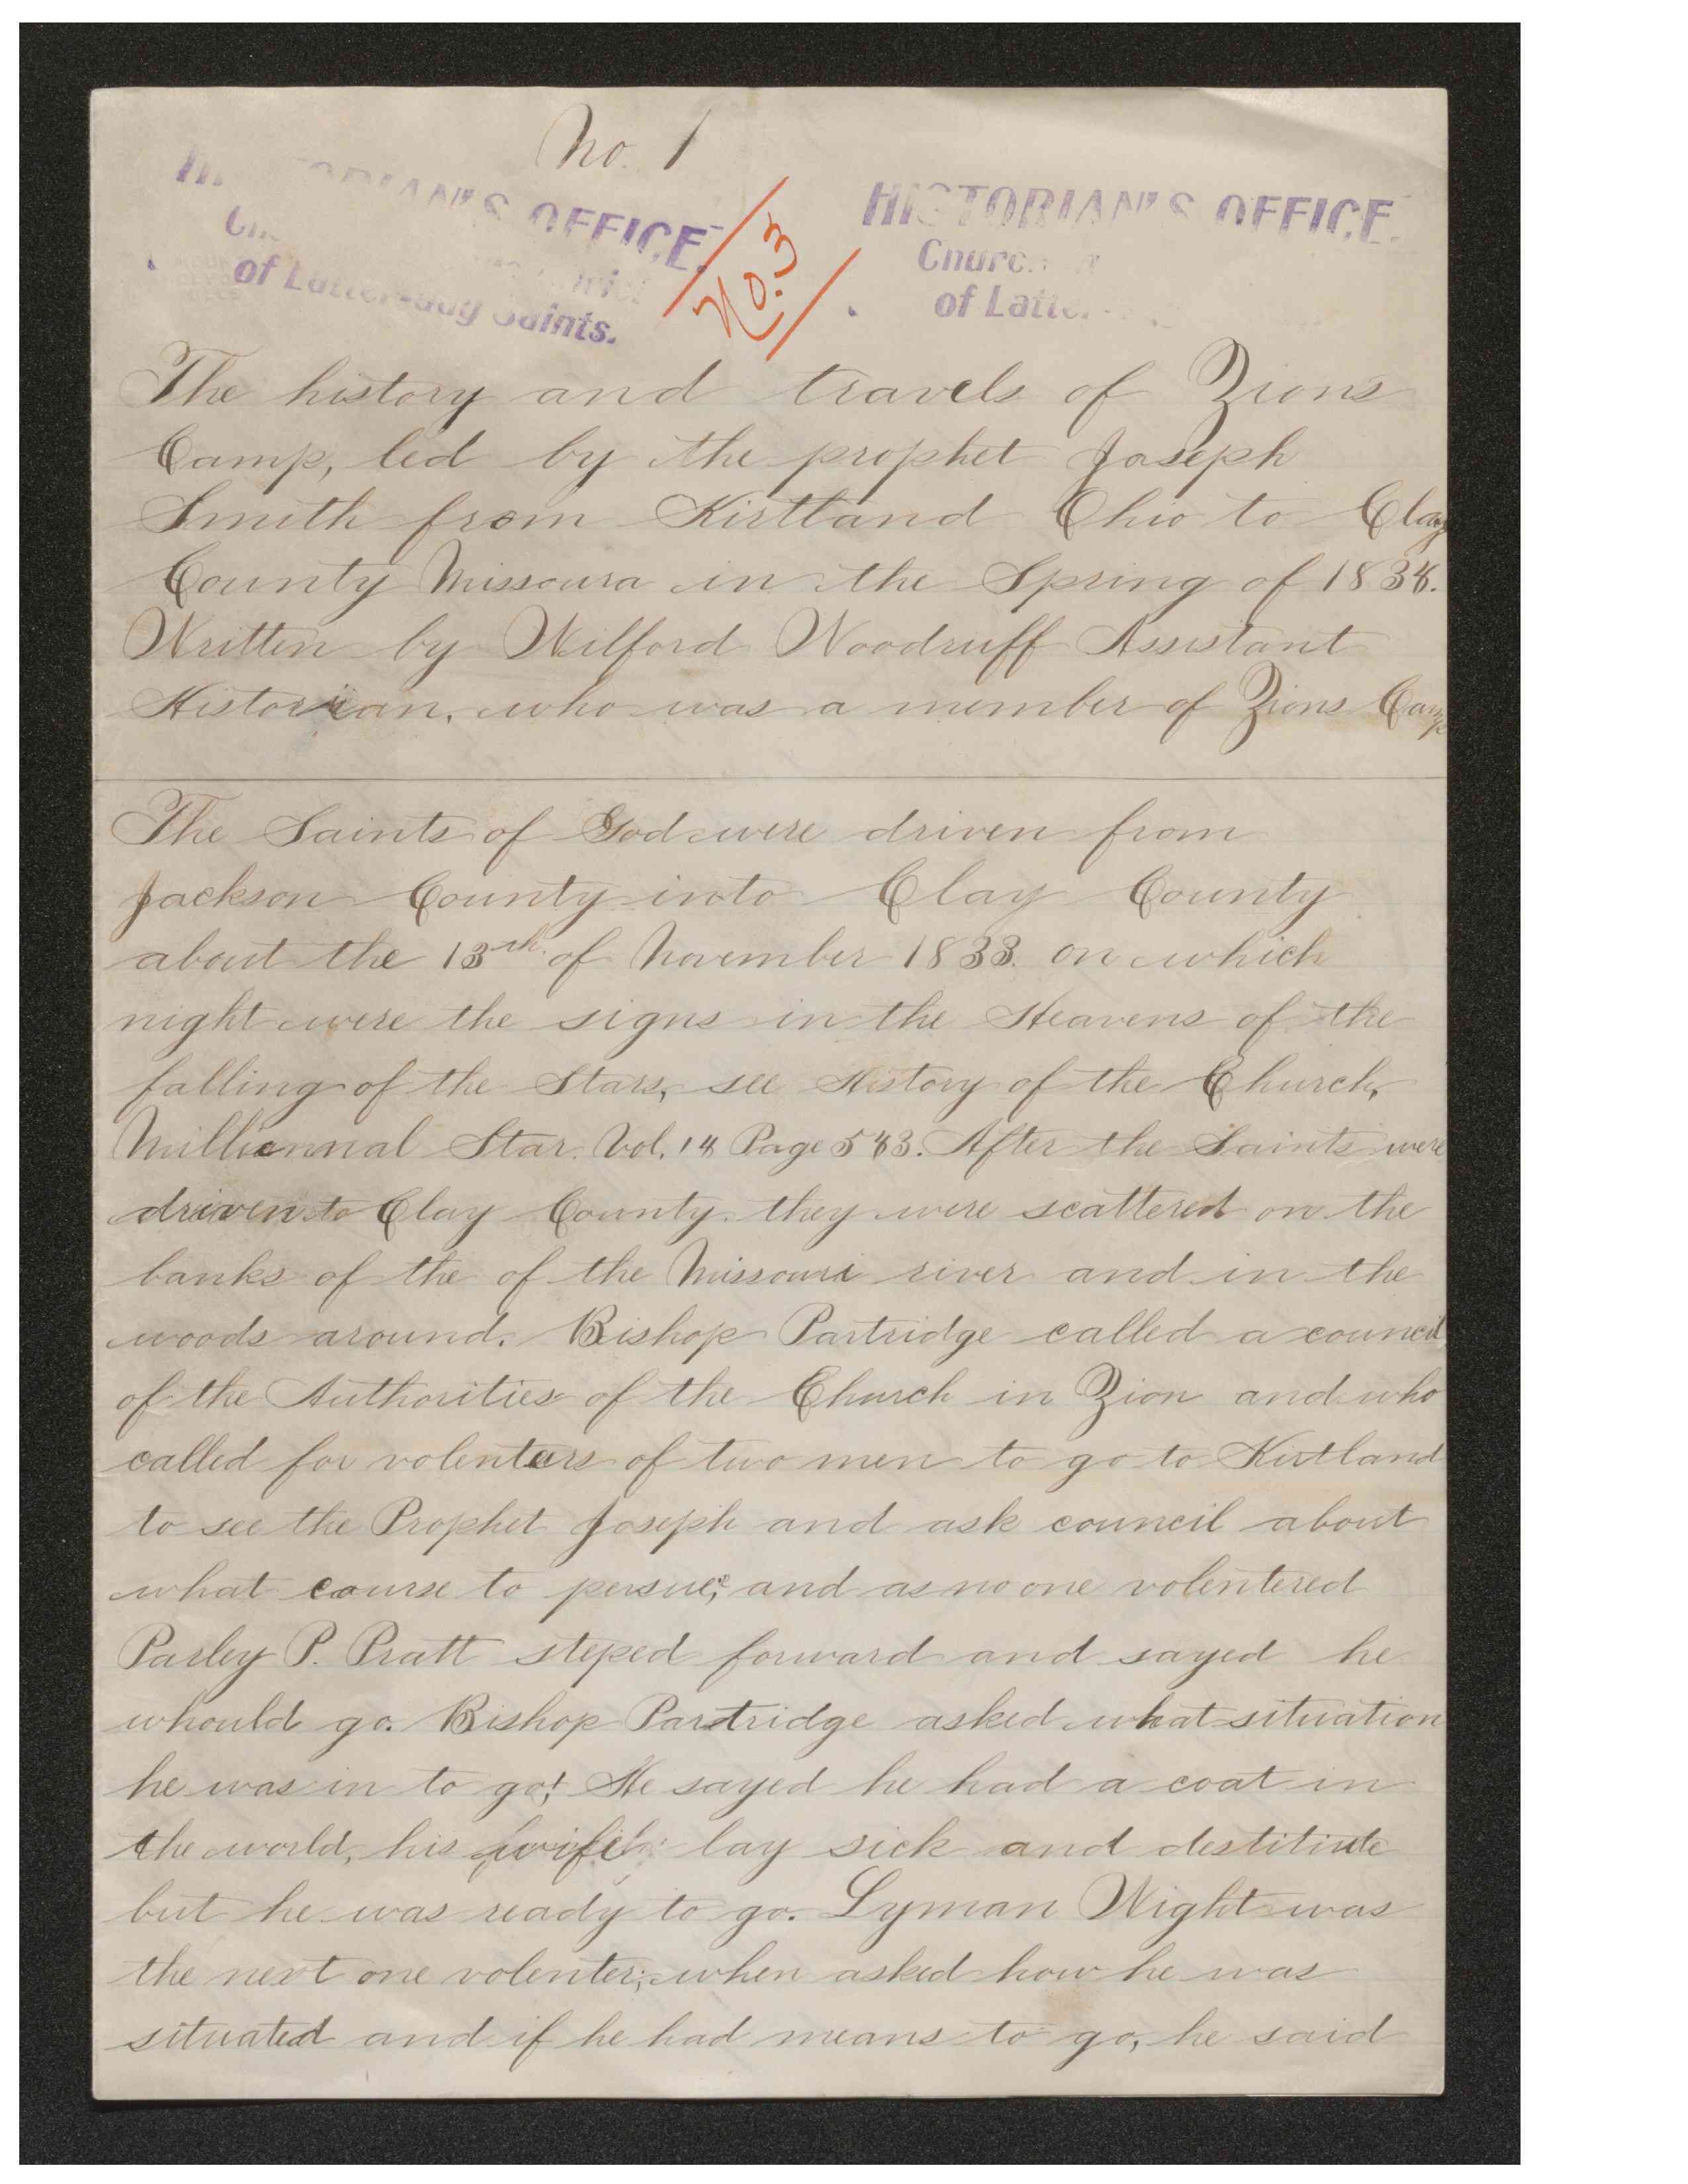 No. 1
HISTORIAN'S OFFICE.
of Latter-day Saints.
No. 3
HISTORIAN'S OFFICE.
Church
of Latter
The history and travels of Zions
Camp, led by the prophet Joseph
Smith from Kirtland Ohio to Clay
County Missoura in the Spring of 1834.
Written by Wilford Woodruff Assistant
Historian, who was a member of Zions Camp
The Saints of God were driven from
Jackson County into Clay County
about the 13th of November 1833. on which
night were the signs in the Heavens of the
falling of the Stars, see History of the Church,
Milliennial Star. Vol. 14 Page 543. After the Saints were
driven to Clay County. they were scattered on the
banks of the of the Missouri river and in the
woods around. Bishop Partridge called a council
of the Authorities of the Church in Zion and who
called for volenteers of two men to go to Kirtland
to see the Prophet Joseph and ask council about
what course to persue; and as no one volentered
Parley P. Pratt steped forward and sayed he
whould go. Bishop Partridge asked what situation
he was in to go! He sayed he had a coat in
the world, his wife lay sick and destitute
but he was ready to go. Lyman Wight was
the next one volenter; when asked how he was
situated and if he had means to go, he said